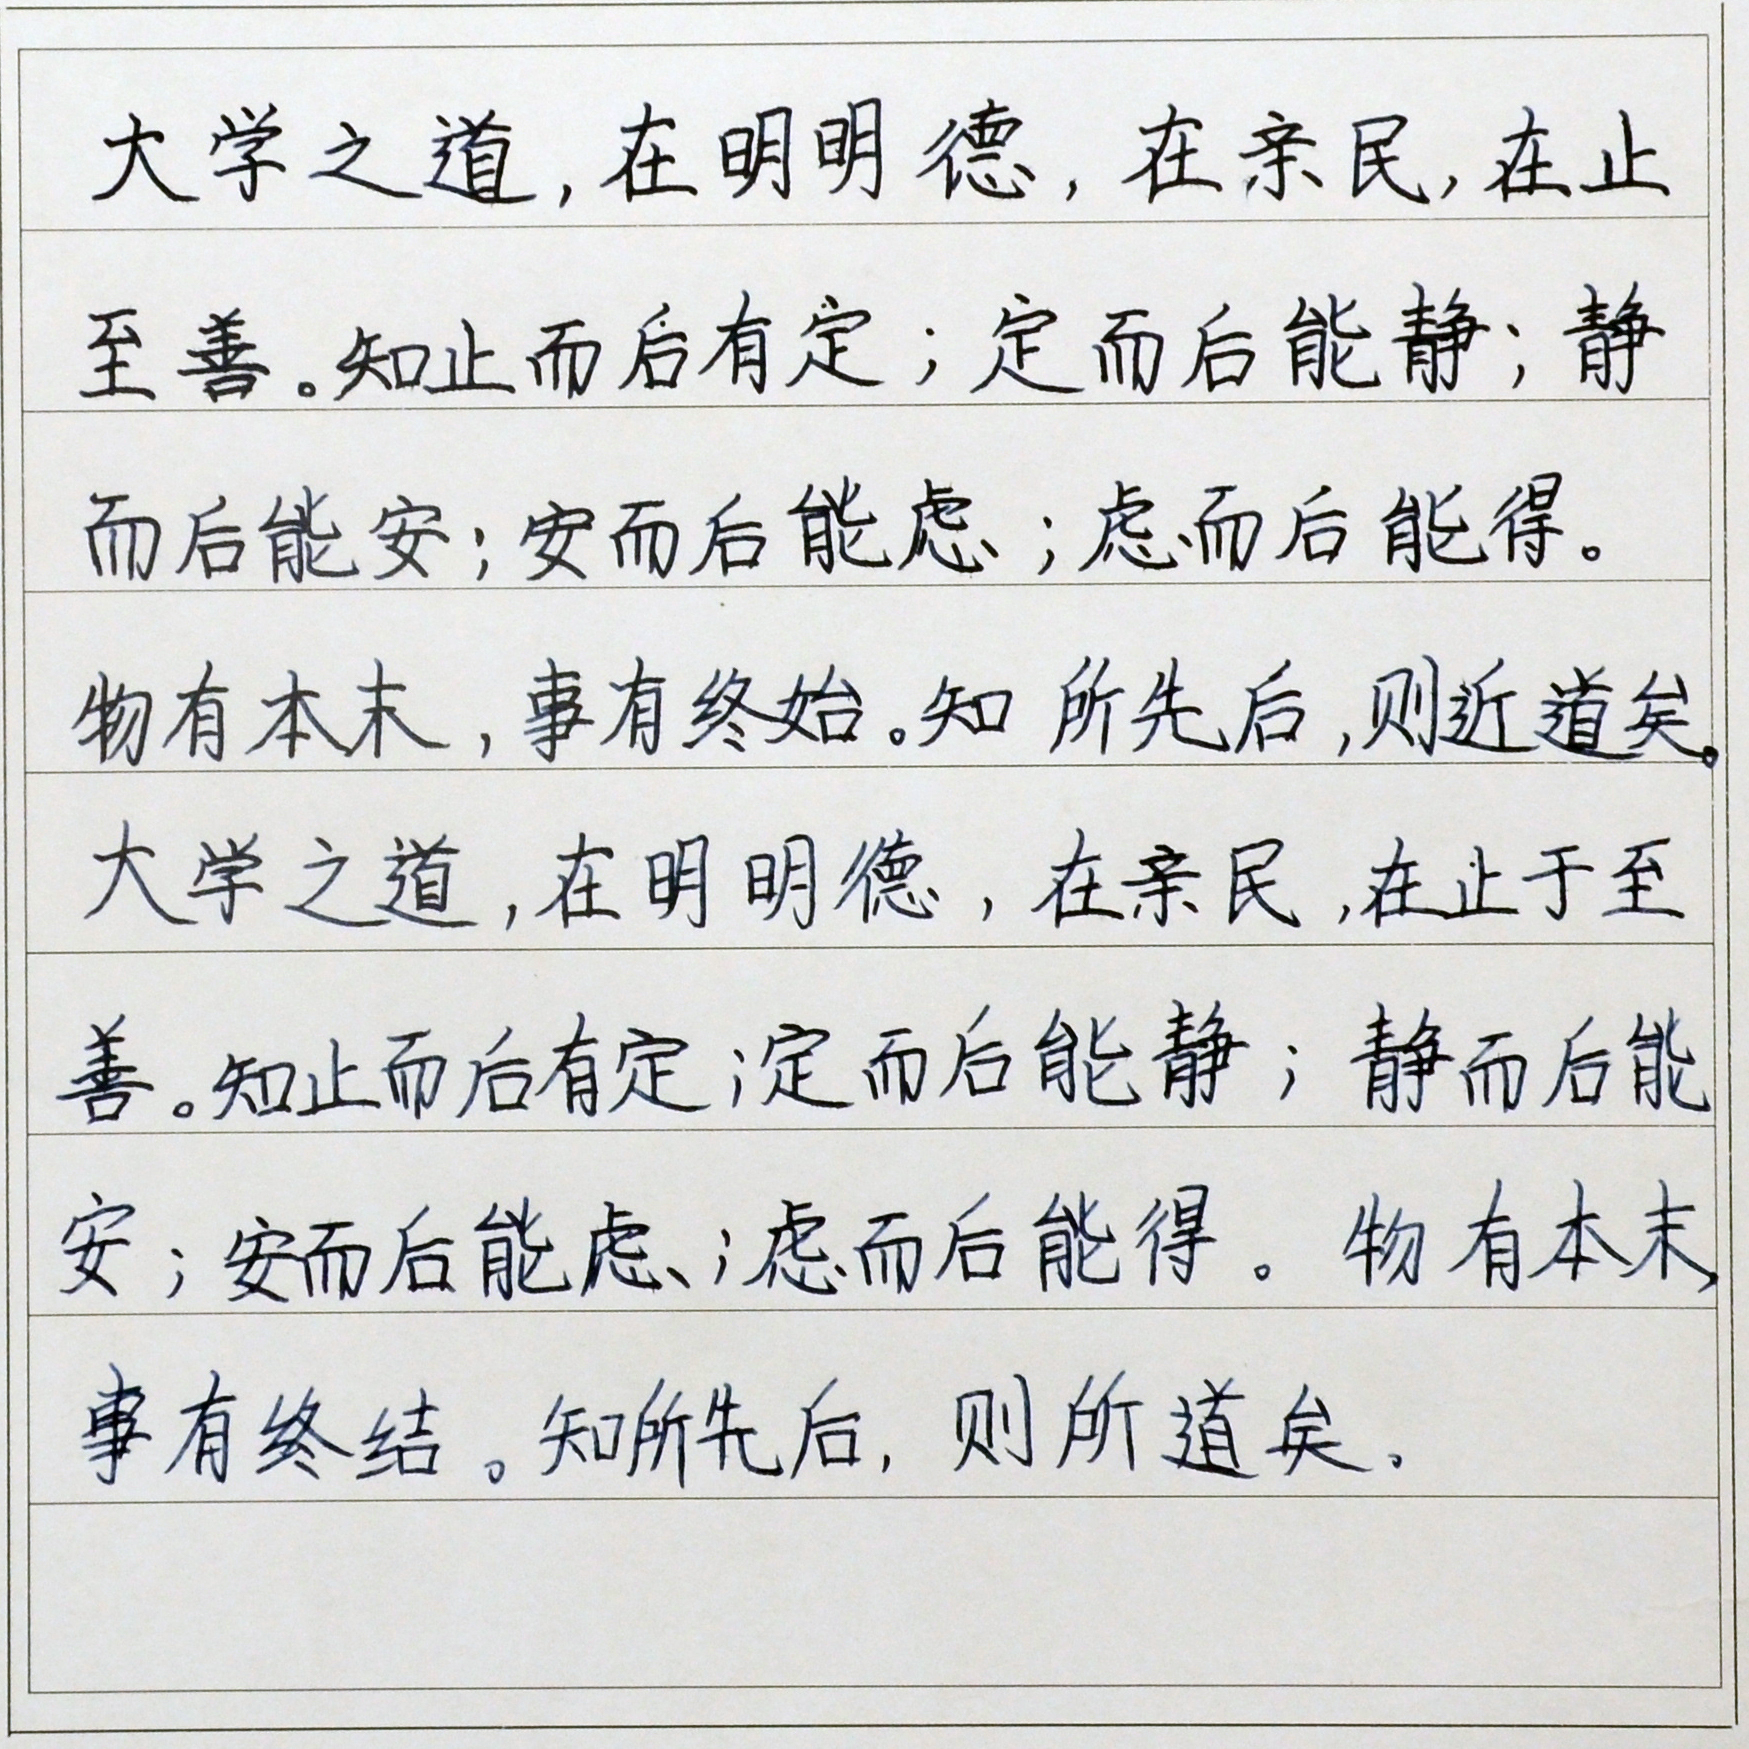 大学之道，在明明德，在亲民，在止
至善。知止而后有定；定而后能静；静
而后能安；安而后能虑；虑而后能得。
物有本末，事有终始。知所先后，则近道矣。
大学之道，在明明德，在亲民，在止于至
善。知止而后有定；定而后能静；静而后能
安；安而后能虑；虑而后能得。物有本末，
事有终结。知所先后，则所道矣。